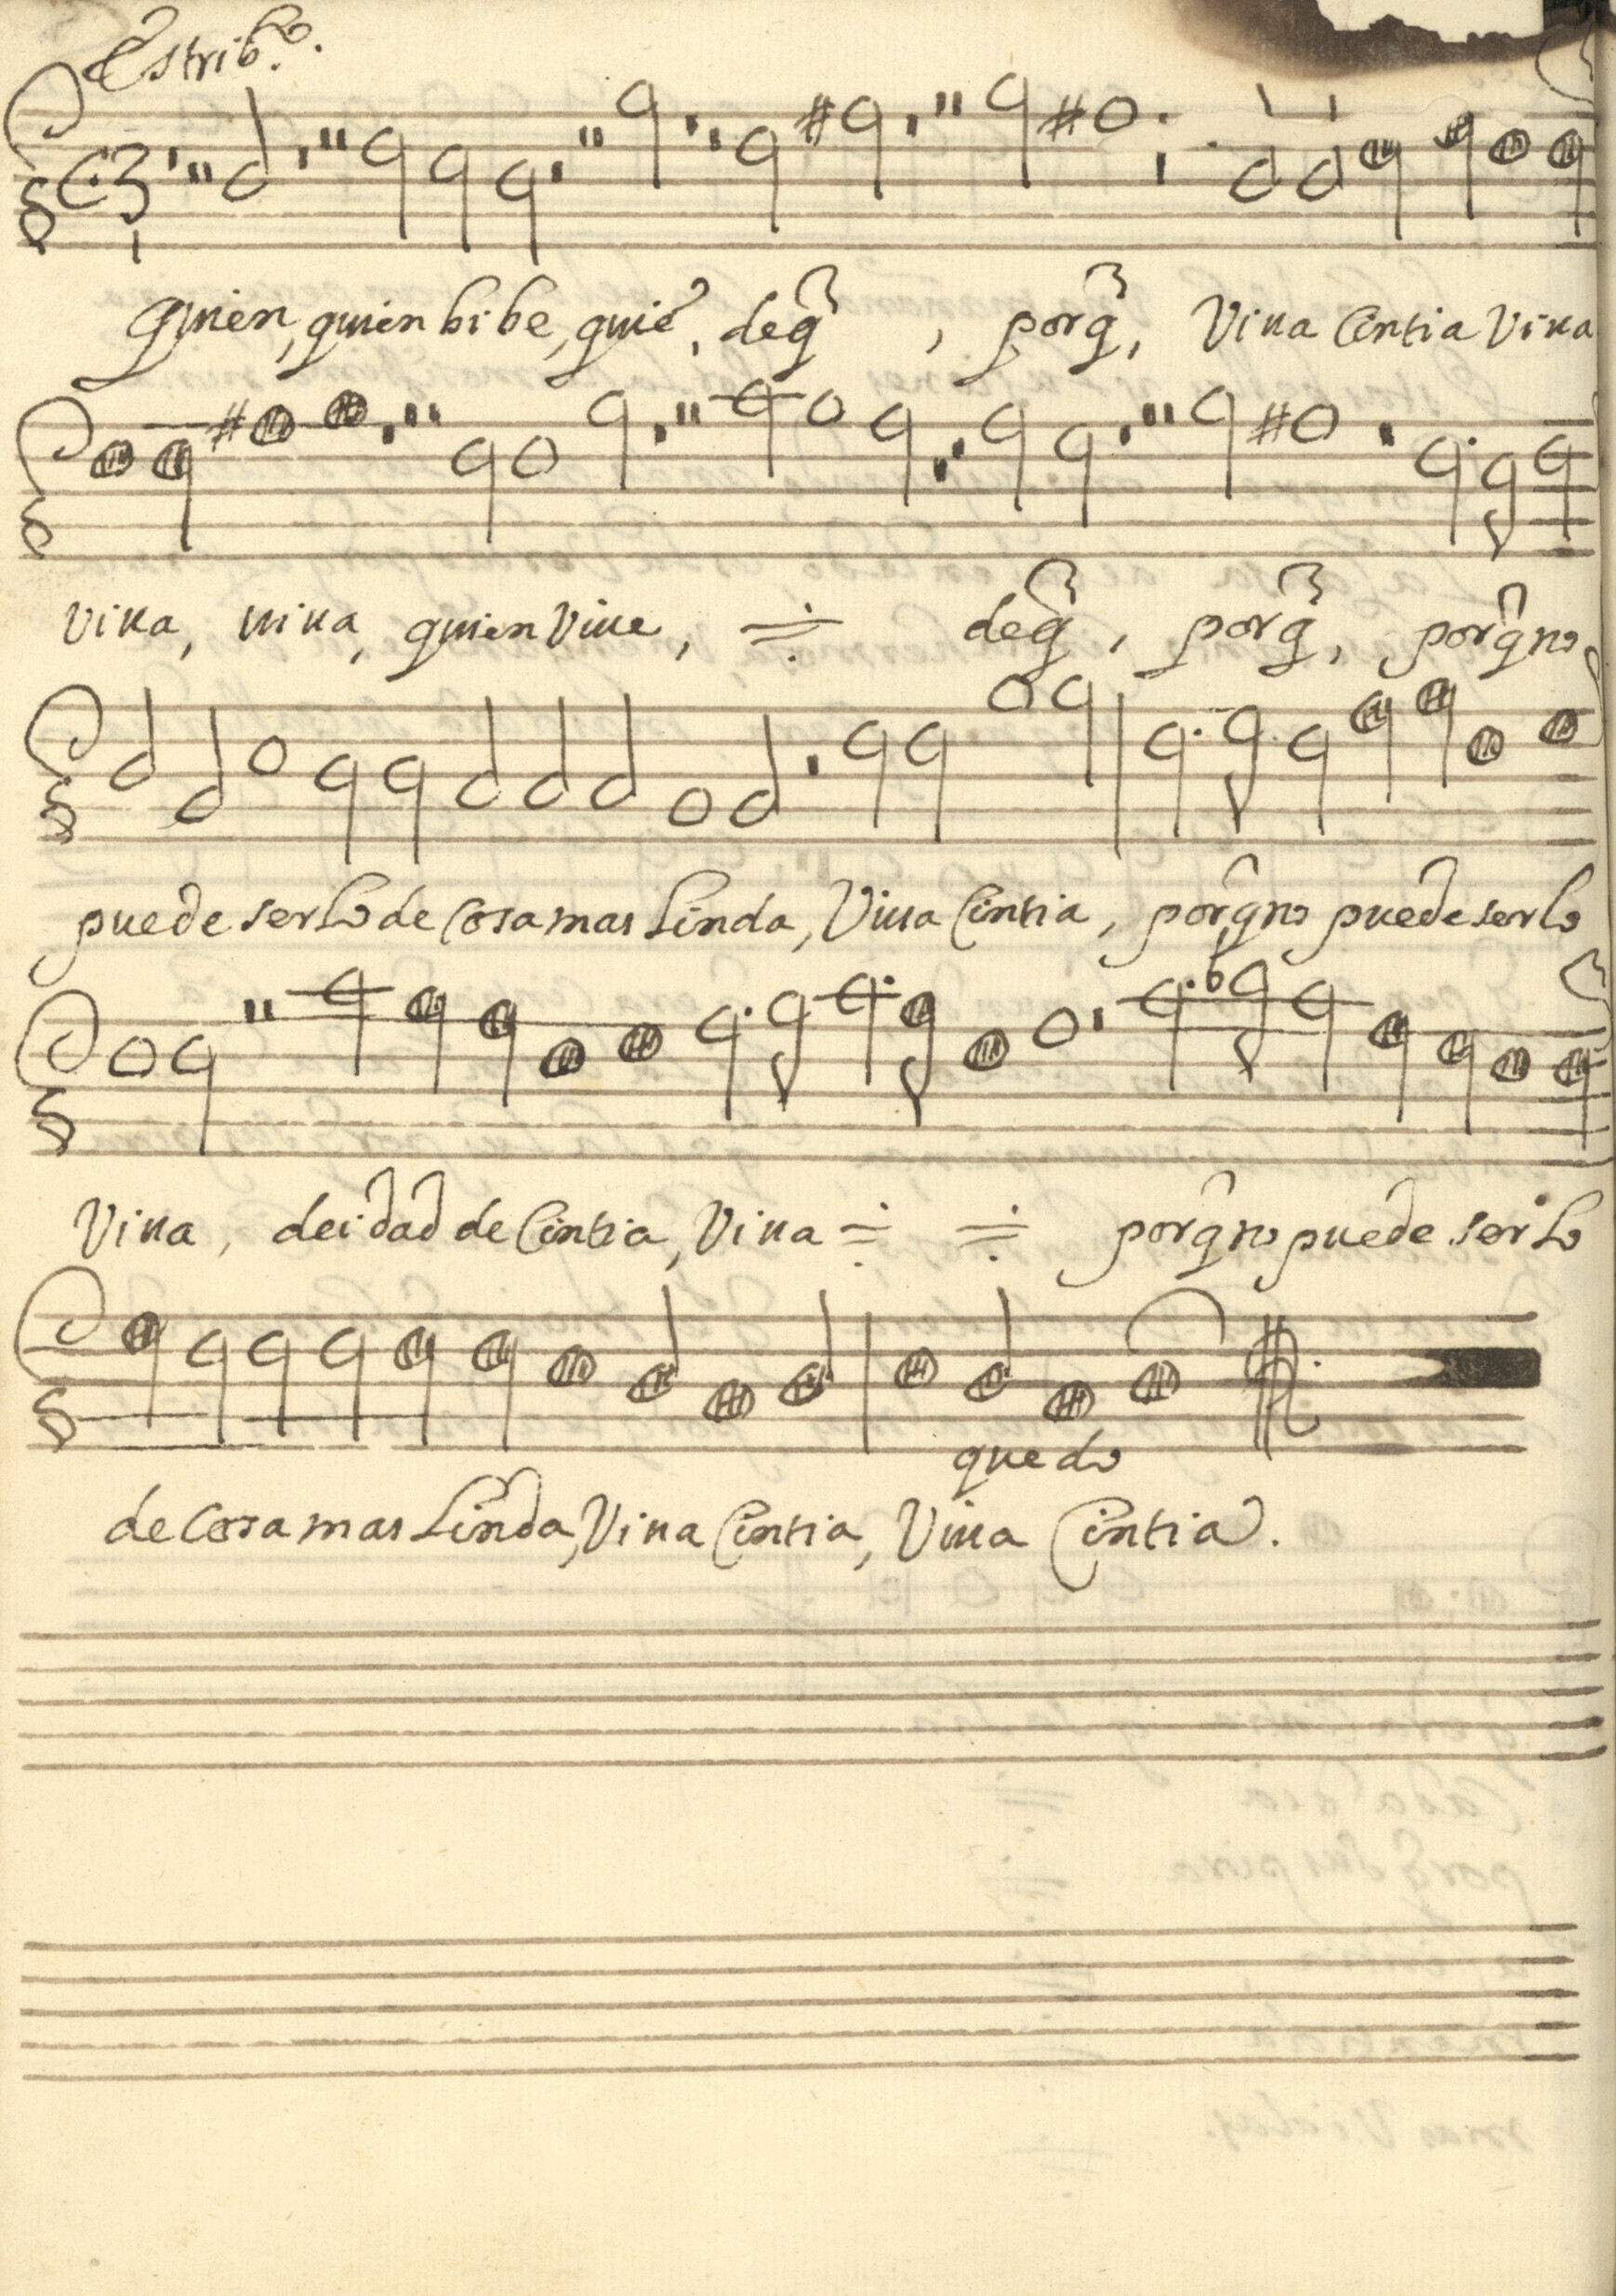 Estribo.
quien, quien bibe, quiē, deq̃, porq̃, Viua Cintia Viua
viua, uiua, quien Viue, deq̃, porq̃, porq̃ no
puede serlo de cosa mas linda, Viua Cintia, porq̃ no puede serlo
Viua, deidad de Cintia, Viua porq̃ no puede serlo
quedo
de cosa mas linda, Viua Cintia, Viua Cintia.